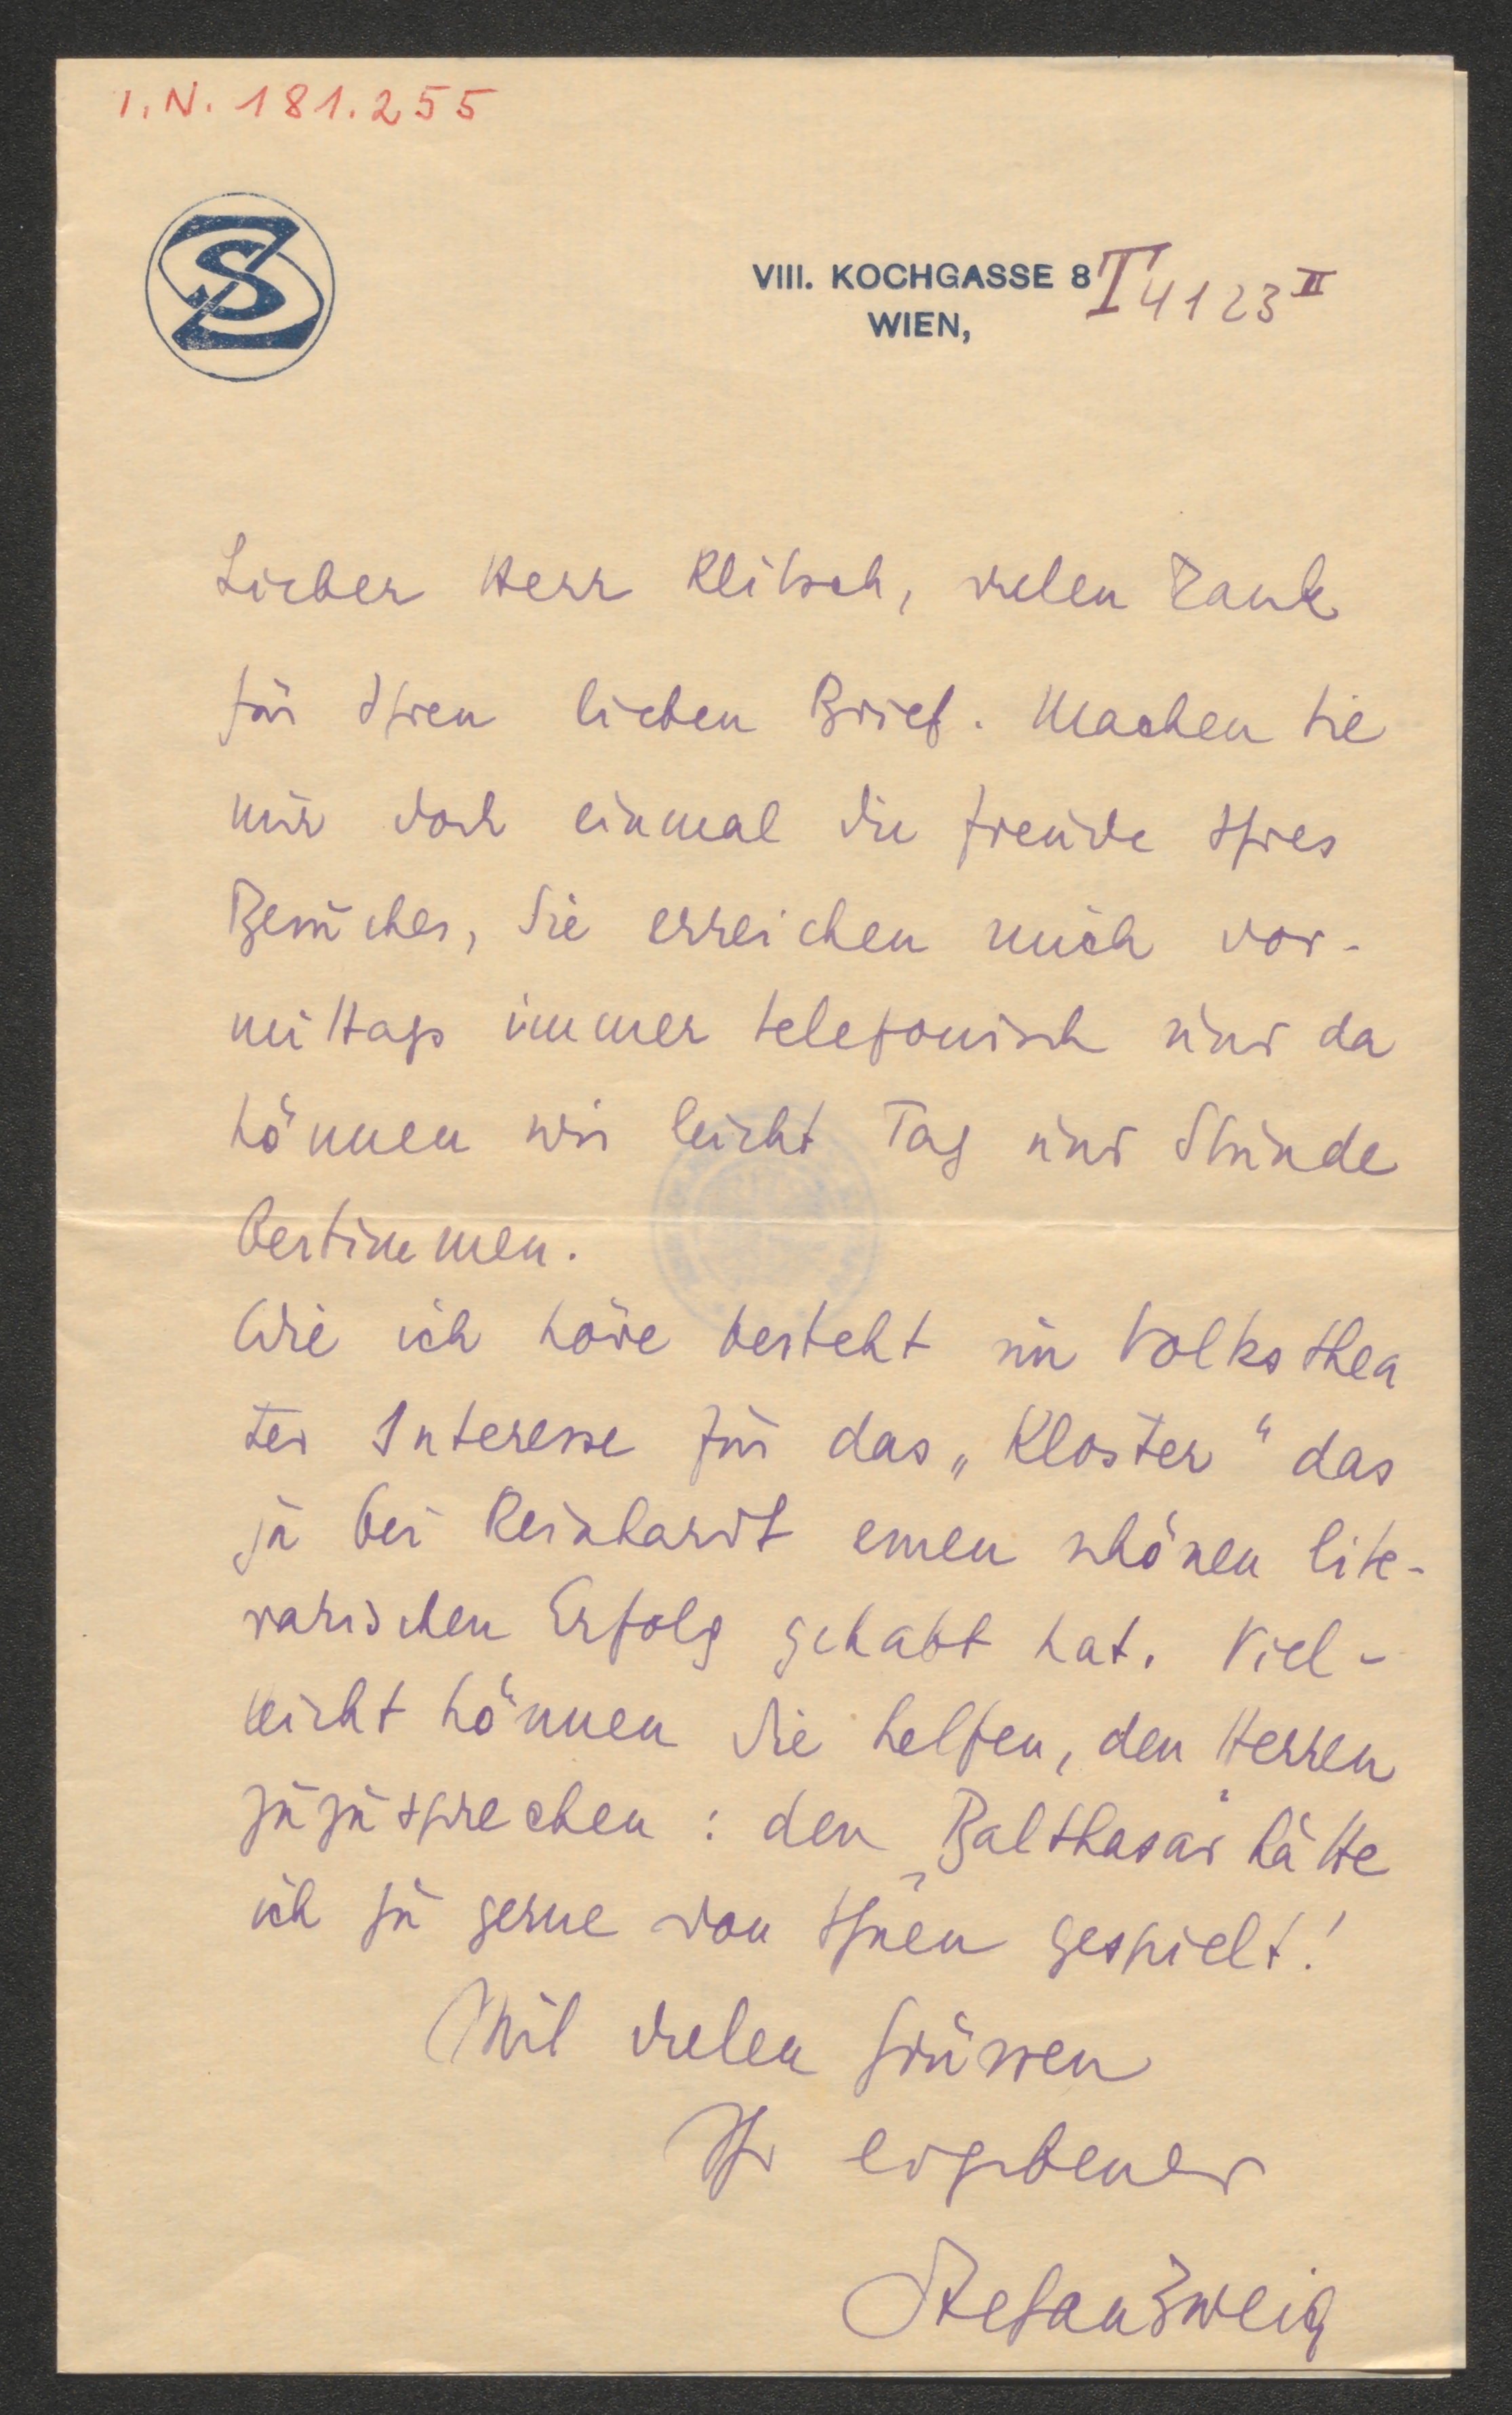 I.N. 181.255
SZ
VIII. KOCHGASSE 8 T 4123 II
WIEN,
Lieber Herr Klitsch, vielen Dank
für Ihren lieben Brief. Machen Sie
mir doch einmal die Freude Ihres
Besuches, Sie erreichen mich vor-
mittags immer telefonisch und da
können wir leicht Tag und Stunde
bestimmen.
Wie ich höre besteht im Volksthea
ter Interesse für das „Kloster“ das
ja bei Reinhardt einen schönen lite-
rarischen Erfolg gehabt hat. Viel-
leicht können Sie helfen, den Herren
zuzusprechen: den „Balthasar“ hätte
ich ja gerne von Ihnen gespielt!
Mit vielen Grüssen
Ihr ergebener
Stefan Zweig